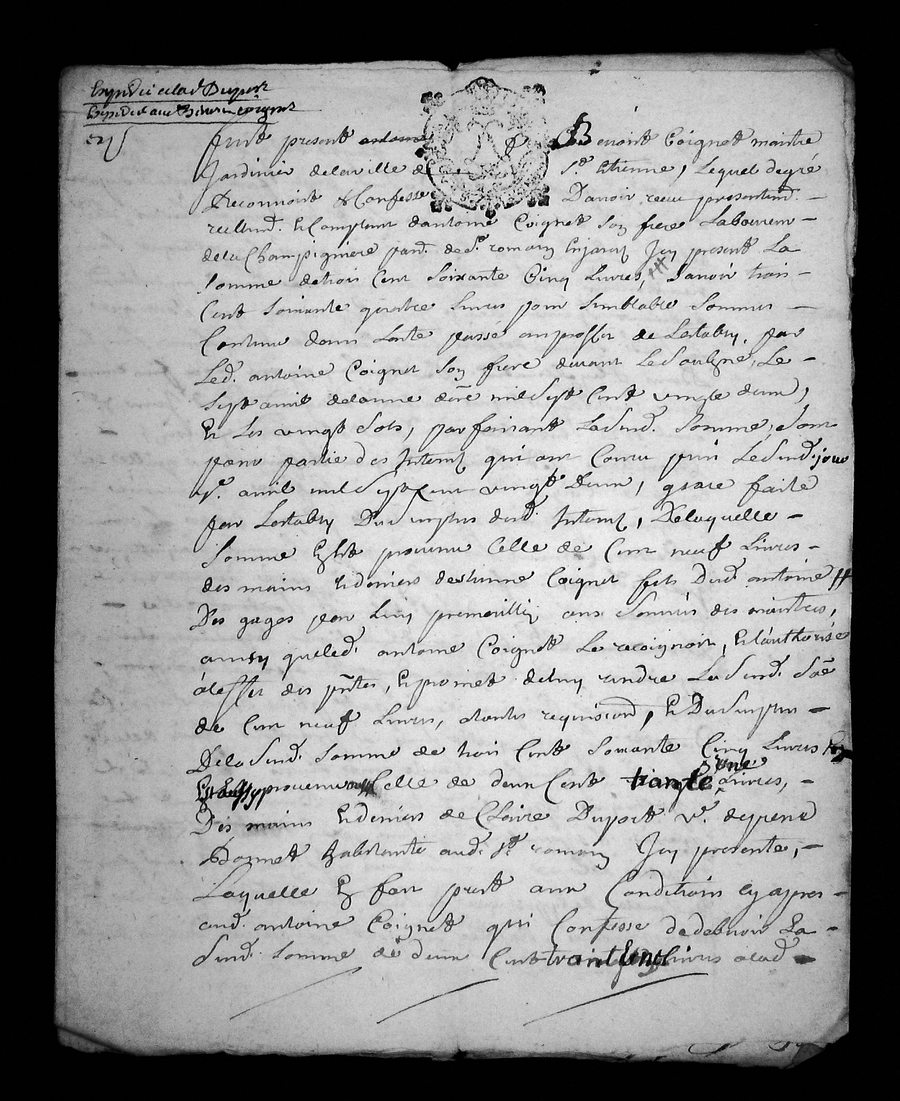 Expedié a lad Duport
Expedié aud Benoit Coignet
fust present Benoist Coignet maitre
Jardinier de la ville de St. Etienne, Lequel de gré
Reconnoit & Confesse D'avoir receu presentemt.
reellemt. & Comptant d'antoine Coignet Son frere Laboureur
de la Champignere parr. de St. romain En Jarest Icy present La
somme de trois Cent Soixante Cinq Livres, Sçavoir trois
Cent Soixante quatre Livres pour Semblable Somme
Contenue dans Lacte passé au proffit de Lestably, par
Led. antoine Coignet Son frere devant Le soubsne, Le
Sept avril de lanne derè mil Sept Cent vingt deux,
Et Les vingt Sols, parfaisant Lasusd. Somme, Sont
pour partie des Interests qui ont Couru puis Le susd. jour
7e. avril mil Sept Cent vingt deux, grace faite
par Lestably Du surplus desd. Interests, De laquelle
Somme Est provenu Celle de Cent neuf Livres
des mains & deniers d'estienne Coignet fils dud. antoine
Des gages par Luy
ainsy que led. antoine Coignet Le recoignoit, & L'authorise
a leffet des pntes, & promet de luy rendre La Susd. Soè
de Cent neuf Livres, a toutes requisions, & Du Surplus
De la Susd. Somme de trois Cent Soixante Cinq Livres
Est provenu Celle de deux Cent trante une Livres,
Des mains & deniers de Claire Duport ve. de pierre
Bonnet habitante aud. St. romain Icy presente,
Laquelle En fait prest aux Conditions cy apres
aud. antoine Coignet qui Confesse de debvoir La
Susd. Somme de deux Cent trante une Livres a lad